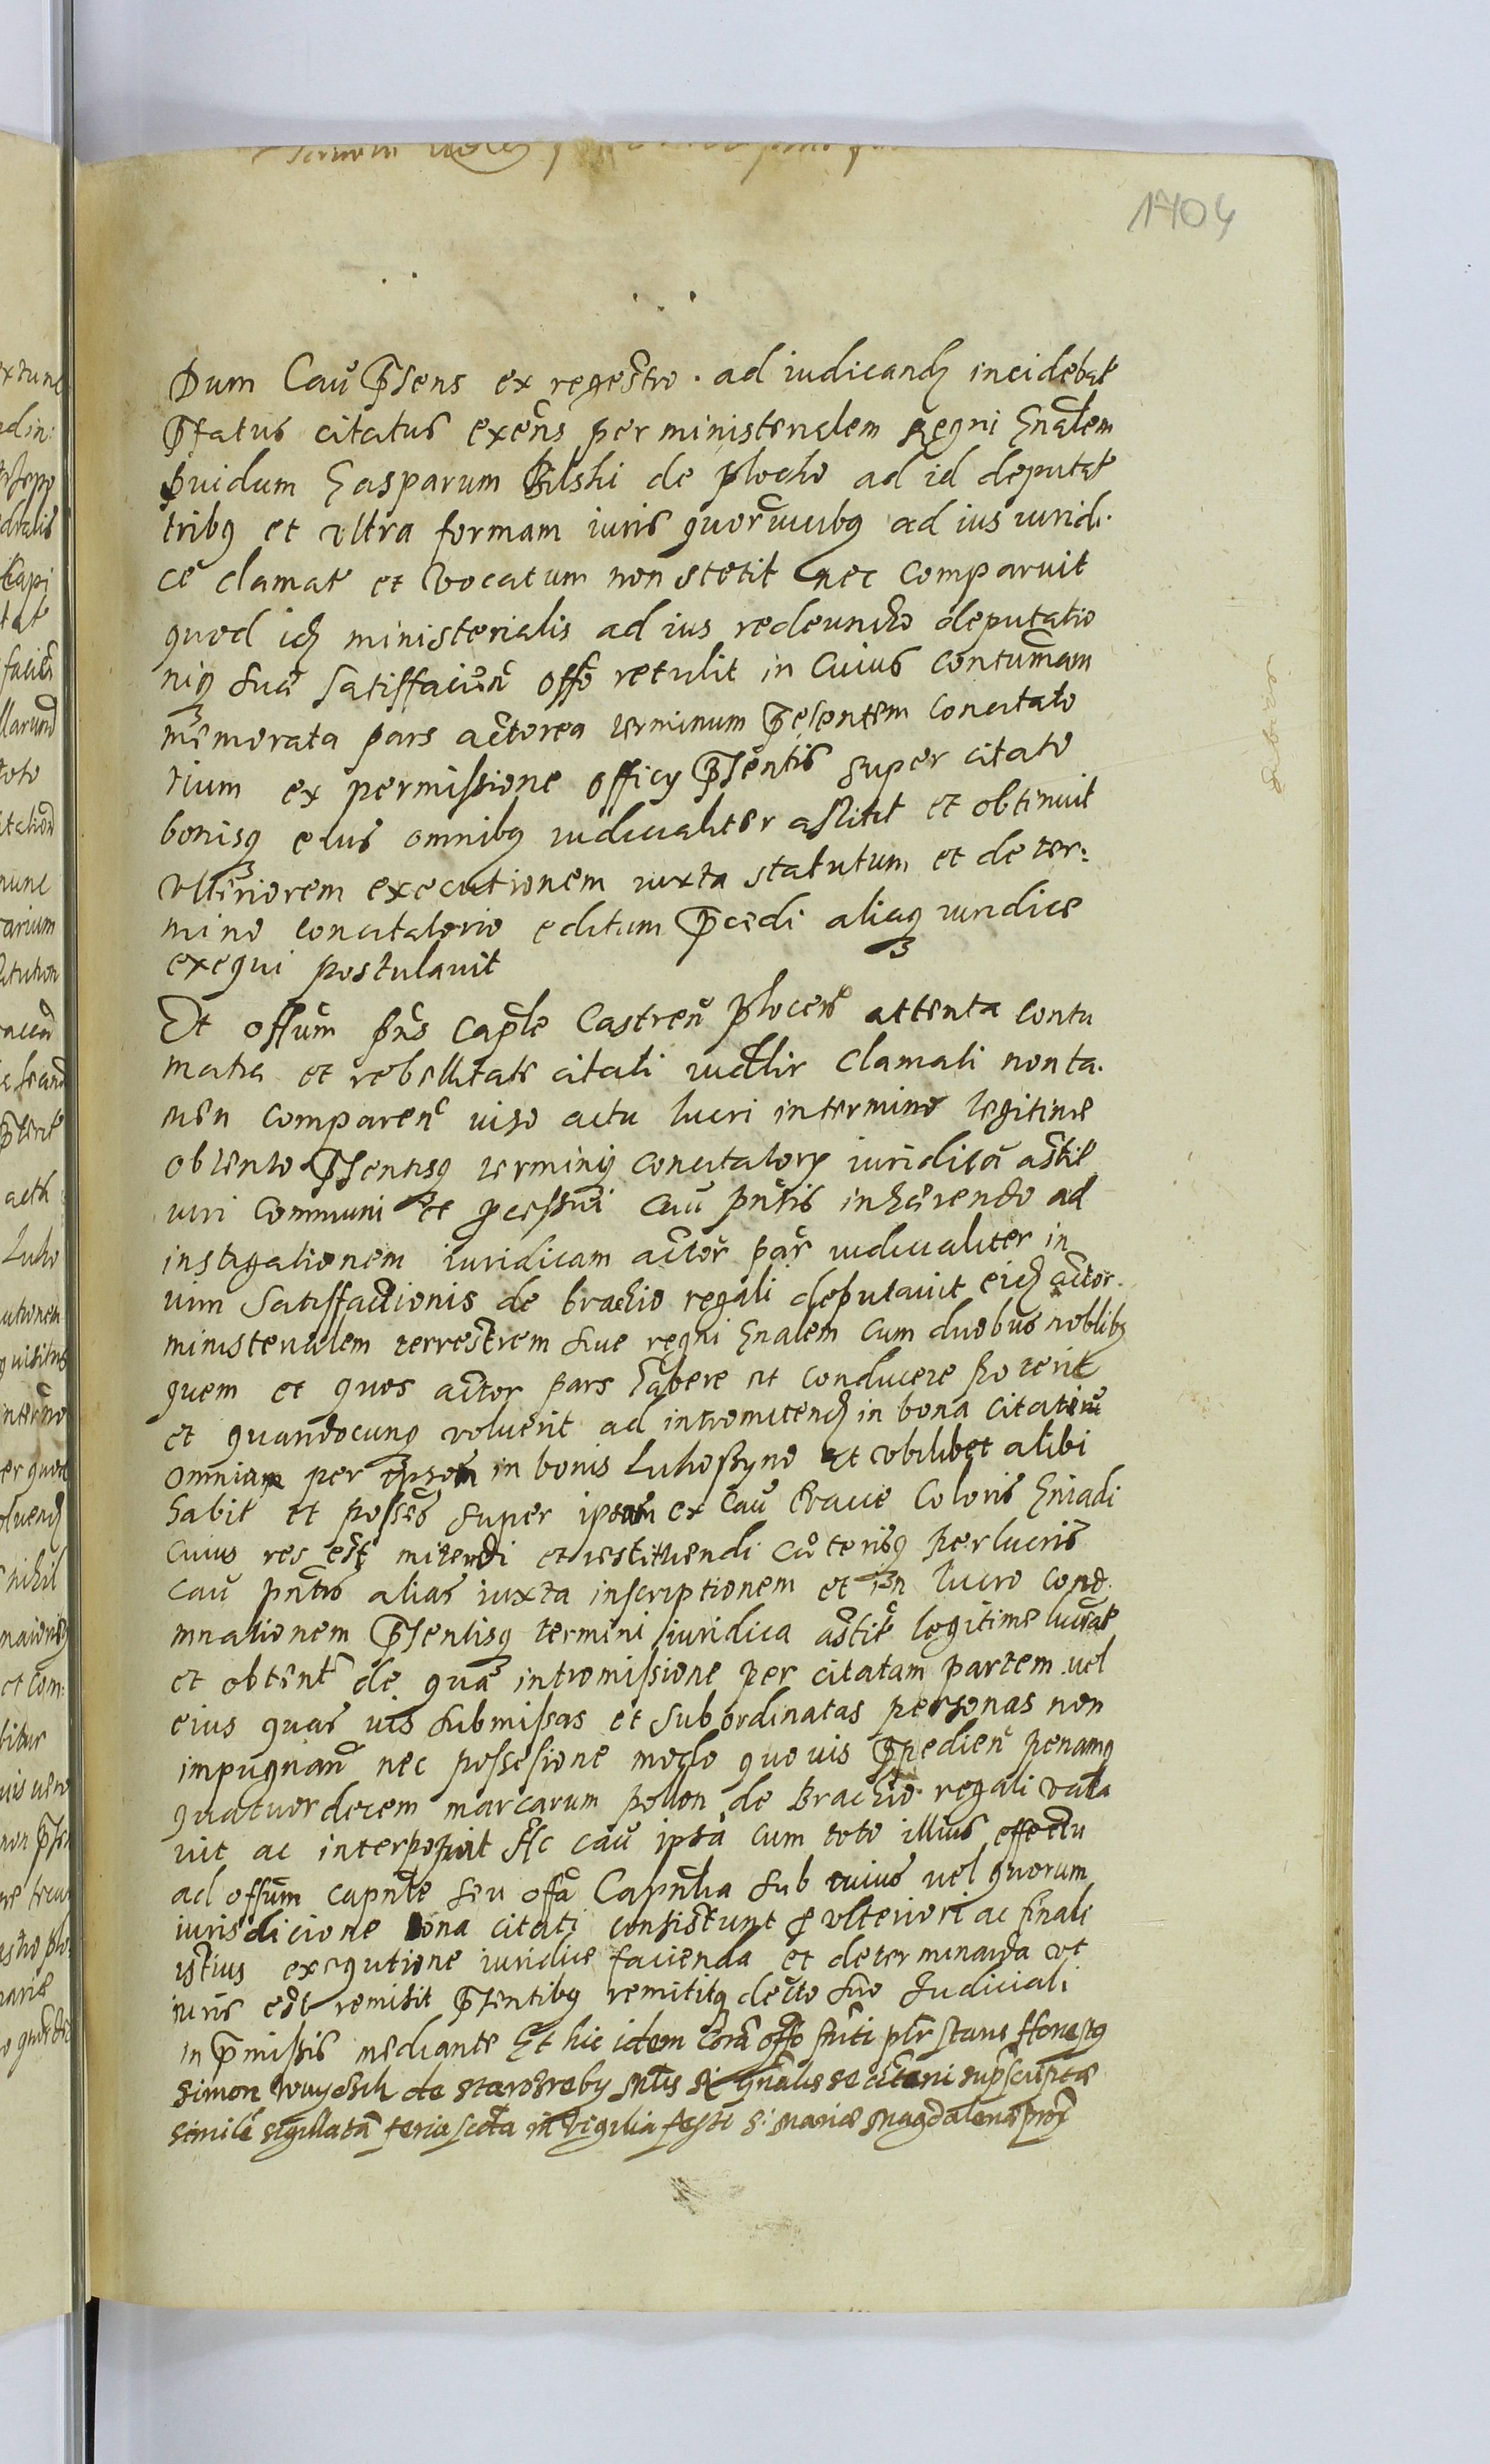 1704
Dum Cau p̃sens ex regestro ad iudicand incidebat
p̃fatus citatus exens per ministerialem Regni Gnalem
puidum Gasparum Bilski de Plocko ad id deputat
tribq et vltra formam iuris quor vicibq ad ius iuridi
ce clamat et vocatum non stetit nec comparuit
quod idz ministerialis ad ius redeundo deputatio
niq suæ satisfaciend offo retulit in cuius contumam
memorata pars actorea terminum p̃esentem concitato
rium ex permissione officy p̃sentis super citato
bonisq eius omnibq iudicialiter astitit et obtinuit
vlteriorem executionem iuxta statutum et de ter:
mino concitatorio editum p̃cedi aliaq iuridice
exequi postulauit
Et offum pns caple Castren Plocen attenta contu
matia et rebellitate citati iudlir clamati non ta
men comparen viso actu lucri in termino legitime
obtento p̃sentisq terminj concitatory iuridica astit
iuri communi et pcessui cau pntis inhærendo ad
instigationem iuridicam actor par iudicialiter in
vim satisfactionis de brachio regali deputauit eidz actor
ministerialem terrestrem siue regni Gnalem cum duobus noblibq
quem et quos actor pars habere et conducere poterit
et quandocunq voluerit ad intromitend in bona citatiu
omniam per ipsum in bonis Lukoszyno et vbilibet alibi
habit et posses super ipsum ex cau vaccæ coloris Gniadi
cuius res est mitendi et restituendi cæterisq per lucris
cau pntis alias iuxta inscriptionem et in lucro conde
mnationem p̃sentisq termini iuridica astit legitime lucrat
et obtent de qua intromissione per citatam partem vel
eius quas vis submissas et subordinatas personas non
impugnand nec possesione modo quouis p̃pedien penamq
quatuordecem marcarum pollon de Brachio regali valla
uit ac interposuit Ac cau ipsa cum toto illius effectu
ad offum capnle seu offa Capnlia sub cuius vel quorum
iurisdicione bona citati consistunt p vlteriori ac finali
istius exequtione iuridice facienda et determinanda vt
iuris est remisit p̃sentibq remititq decto suo Iudiciali
in p̃missis mediante Et hic idem Corā offo pnti plr stans Honestq
Simon de Staroźreby gnalis
simile sigillatā feria scda in vigilia festi S: Mariæ Magdalenæ prox